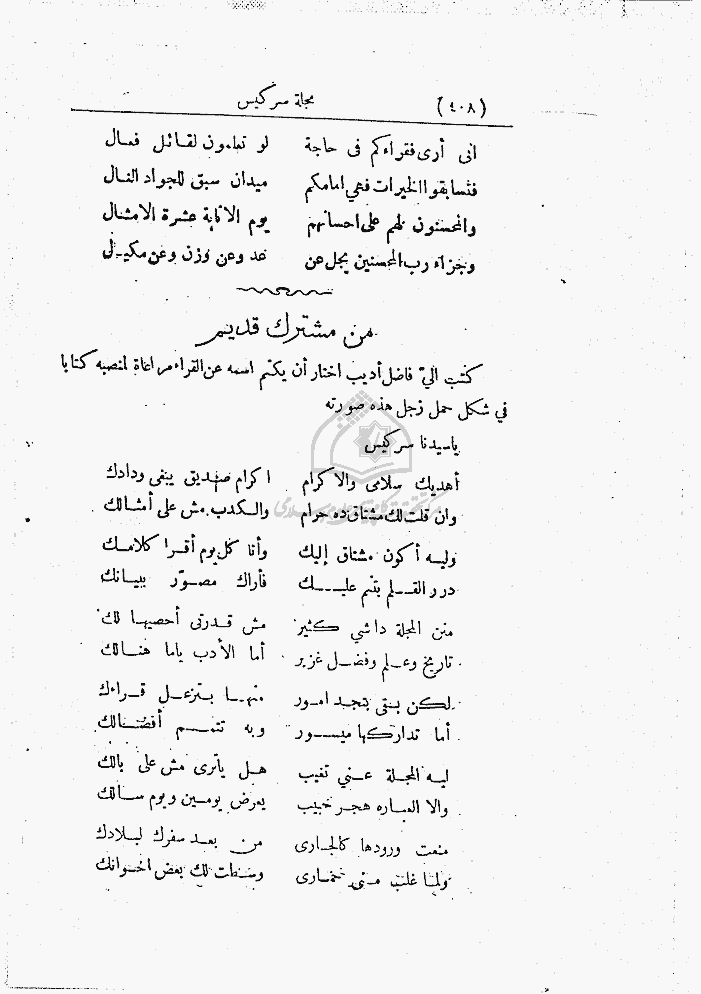 (٤٠٨) مجلة سركيس
انى أرى فقراءكم فى حاجة لو تعلمون لقائل فعال
فتسابقوا الخيرات فهي امامكم ميدان سبق للجواد النال
والمحسنون لهم على احسانهم يوم الاثابة عشرة الامثال
وجزاء رب المحسنين يجل عن عد وعن وزن وعن مكيال
من مشترك قديم
كتب اليّ فاضل أديب اختار أن يكتم اسمه عن القراء مراعاة لمنصبه كتابا
في شكل حمل زجل هذه صورته
ياسيدنا سركيس
أهديك سلامى والاكرام اكرام صديق يبغى ودادك
وان قلت لك مشتاق ده حرام والكدب مش على أمثالك
وليه أكون مشتاق إليك وأنا كل يوم أقرا كلامك
درر القلم يتم عليك فأراك مصوّر ببيانك
منن المجلة داشي كثير مش قدرتى أحصيها لك
تاريخ وعلم وفضل غزير أما الأدب ياما هنالك
لكن بقى بتجد امور منها بتزعل قراءك
أما تداركها ميسور وبه تتم أفضالك
ليه المجلة عني تغيب هل ياترى مش على بالك
والا العباره هجر حبيب يعرض يومين ويوم سالك
منعت ورودها كالجارى من بعد سفرك لبلادك
ولما غلب منى خمارى وسطت لك بعض اخوانك